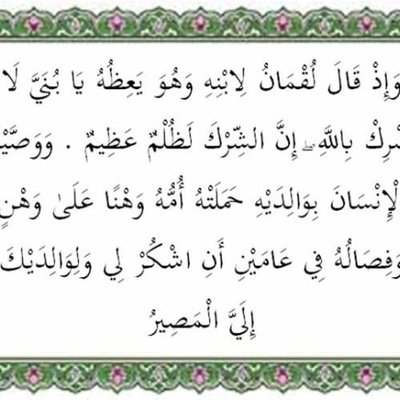 وَإِذْ قَالَ لُقْمَانُ لِابْنِهِ وَهُوَ يَعِظُهُ يَا بُنَيَّ لَا
شْرِكْ بِاللَّهِ ۖ إِنَّ الشِّرْكَ لَظُلْمٌ عَظِيمٌ . وَوَصَّيْ
لْإِنْسَانَ بِوَالِدَيْهِ حَمَلَتْهُ أُمُّهُ وَهْنًا عَلَىٰ وَهْنٍ
وَفِصَالُهُ فِي عَامَيْنِ أَنِ اشْكُرْ لِي وَلِوَالِدَيْكَ
إِلَيَّ الْمَصِيرُ